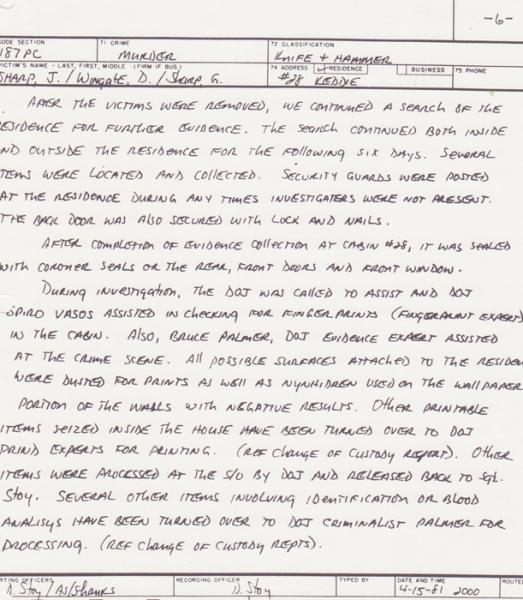 -6-
CODE SECTION 71 CRIME 72 CLASSIFICATION
187 PC MURDER KNIFE + HAMMER
VICTIM'S NAME - LAST, FIRST, MIDDLE (FIRM IF BUS) 74 ADDRESS RESIDENCE BUSINESS 75 PHONE
SHARP, J. / WINGATE, D. / SHARP, G. #28 KEDDIE
AFTER THE VICTIMS WERE REMOVED, WE CONTINUED A SEARCH OF THE
RESIDENCE FOR FURTHER EVIDENCE. THE SEARCH CONTINUED BOTH INSIDE
AND OUTSIDE THE RESIDENCE FOR THE FOLLOWING SIX DAYS. SEVERAL
ITEMS WERE LOCATED AND COLLECTED. SECURITY GUARDS WERE POSTED
AT THE RESIDENCE DURING ANY TIMES INVESTIGATERS WERE NOT PRESENT.
THE BACK DOOR WAS ALSO SECURED WITH LOCK AND NAILS.
AFTER COMPLETION OF EVIDENCE COLLECTION AT CABIN #28, IT WAS SEALED
WITH CORONER SEALS OR THE REAR, FRONT DOORS AND FRONT WINDOW.
DURING INVESTIGATION, THE DOJ WAS CALLED TO ASSIST AND DOJ
SPIRO VASOS ASSISTED IN CHECKING FOR FINGERPRINTS (FINGERPRINT EXPERT)
IN THE CABIN. ALSO, BRUCE PALMER, DOJ EVIDENCE EXPERT ASSISTED
AT THE CRIME SCENE. ALL POSSIBLE SURFACES ATTACHED TO THE RESIDEN
WERE DUSTED FOR PRINTS AS WELL AS NYNHIDREN USED ON THE WALLPAPER
PORTION OF THE WALLS WITH NEGATIVE RESULTS. OTHER PRINTABLE
ITEMS SEIZED INSIDE THE HOUSE HAVE BEEN TURNED OVER TO DOJ
PRIND EXPERTS FOR PRINTING. (REF CHANGE OF CUSTODY REPORT). OTHER
ITEMS WERE PROCESSED AT THE S/O BY DOJ AND RELEASED BACK TO Sgt.
STOY. SEVERAL OTHER ITEMS INVOLVING IDENTIFICATION OR BLOOD
ANALISYS HAVE BEEN TURNED OVER TO DOJ CRIMINALIST PALMER FOR
PROCESSING. (REF CHANGE OF CUSTODY REPTS).
RTING OFFICERS RECORDING OFFICER TYPED BY DATE AND TIME ROUTE
D. Stoy / AS/Shanks D. Stoy 4-15-81 2000